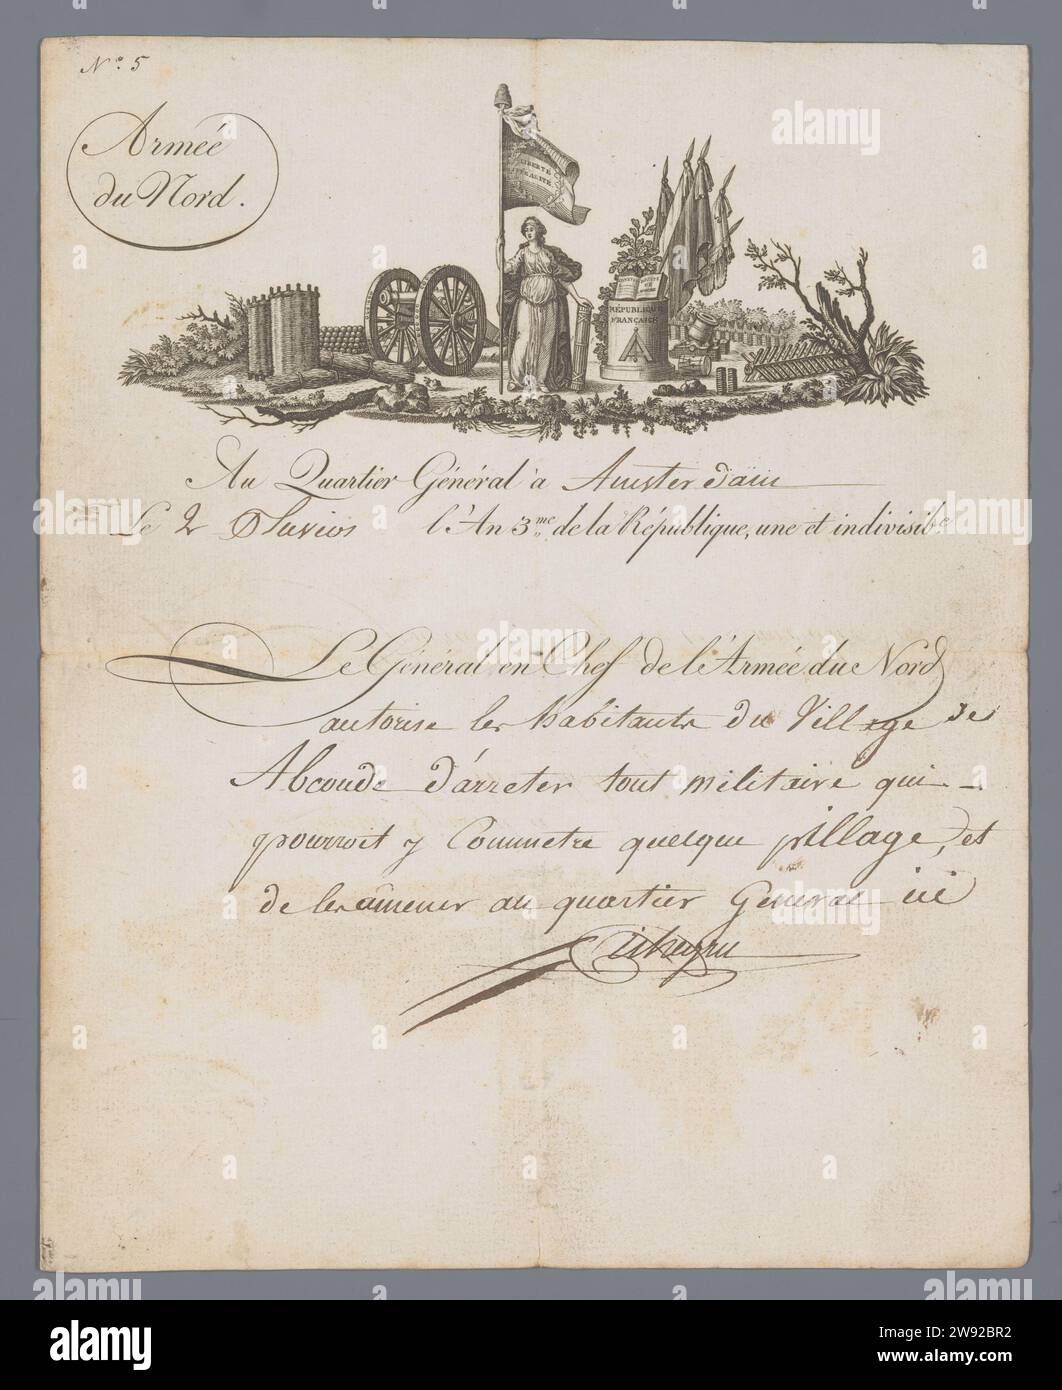 N.° 5
Armée
du Nord.
LIBERTÉ
ÉGALITÉ
RÉPUBLIQUE
FRANÇAISE
Au Quartier Général à Amsterdam
Le 2 Pluvios l'An 3.me de la République, une et indivisible
Le Général en Chef de l'Armée du Nord
autorise les habitants du Village de
Abcoude d'arreter tout militaire qui
pourroit y Commetre quelque pillage, et
de les amener au quartier General ici
Pichegru
alamy
Image ID: 2W92BR2
www.alamy.com